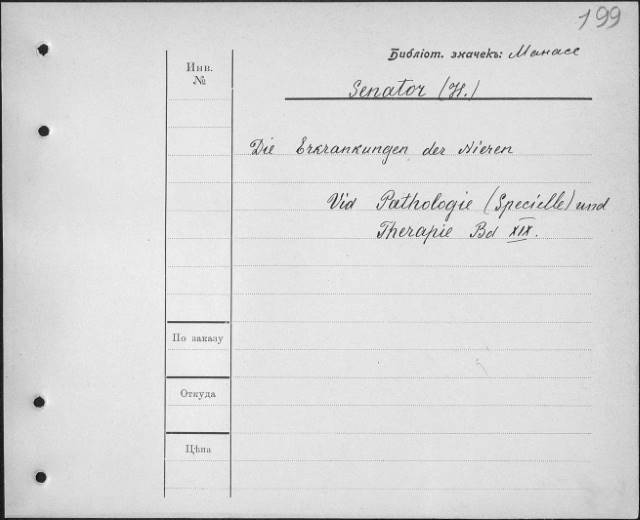 199
Библіот. значекъ: Манасс
Инв.
№
Senator (H.)
Die Erkrankungen der Nieren
Vid Pathologie (Specielle) und
Therapie Bd XIX.
По заказу
Откуда
Цѣна